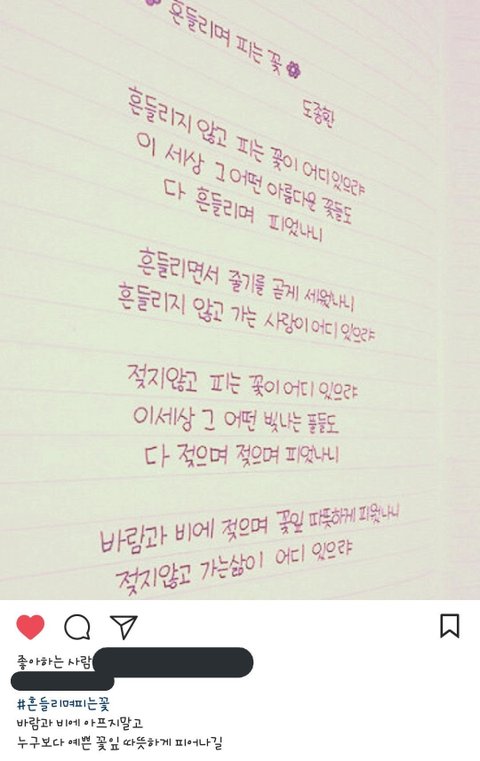 흔들리며 피는 꽃
도종환
흔들리지 않고 피는 꽃이 어디 있으랴
이 세상 그 어떤 아름다운 꽃들도
다 흔들리며 피었나니
흔들리면서 줄기를 곧게 세웠나니
흔들리지 않고 가는 사랑이 어디 있으랴
젖지않고 피는 꽃이 어디 있으랴
이세상 그 어떤 빛나는 풀들도
다 젖으며 젖으며 피었나니
바람과 비에 젖으며 꽃잎 따뜻하게 피웠나니
젖지않고 가는삶이 어디 있으랴
좋아하는 사람
#흔들리며피는꽃
바람과 비에 아프지말고
누구보다 예쁜 꽃잎 따뜻하게 피어나길